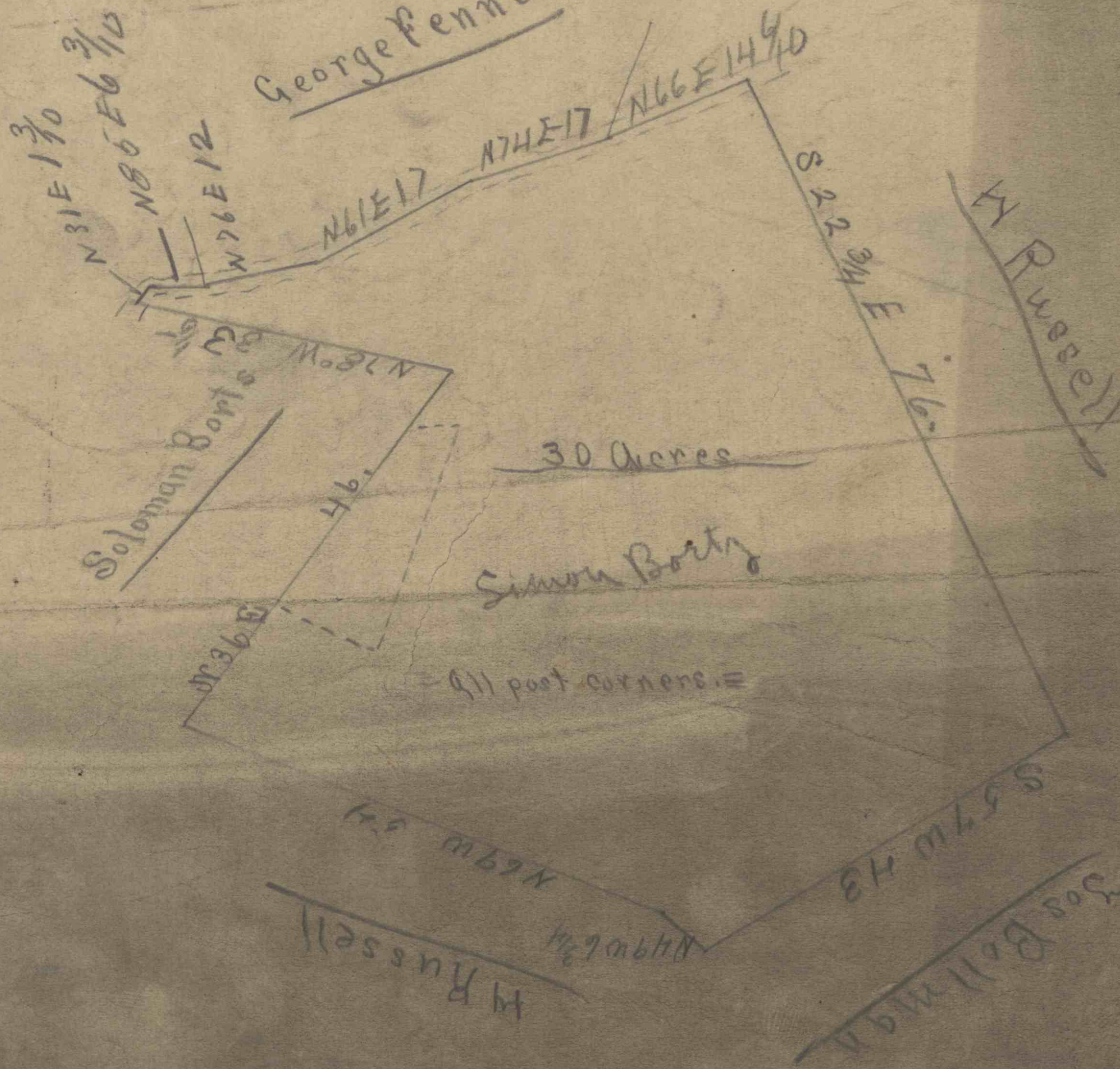 George Fenne
N31E 1 3/10
N85E6 3/10
N76E12
N61E17
N74E17
N66E14 4/10
S 22 3/4 E 76.
H Russell
N78°W
Soloman Borts
46.
N36E
30 Acres
Simon Bortz
= All post corners. =
S 57 W 43
Jos Bollman
N49W6 3/4
N69W 54
H Russell